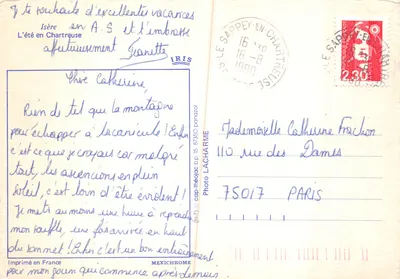 Je te souhaite d'excellentes vacances
en A.S et t'embrasse
affectueusement Jeannette
Isère
L'été en Chartreuse
IRIS
Chère Catherine,
Rien de tel que la montagne
pour échapper à la canicule ! Enfin
c'est ce que je croyais car malgré
tout, les ascensions en plein
soleil, c'est loin d'être évident !
Je mets au moins une heure à reprendre
mon souffle, une fois arrivée en haut
du sommet ! Enfin c'est un bon entraînement
pour mon qui commence après-demain
Imprimé en France
MEXICHROME
Photo LACHARME
LE SAPPEY EN CHARTREUSE
16 H
16-8
2,30
Mademoiselle Catherine
110 rue des Dames
75017 PARIS